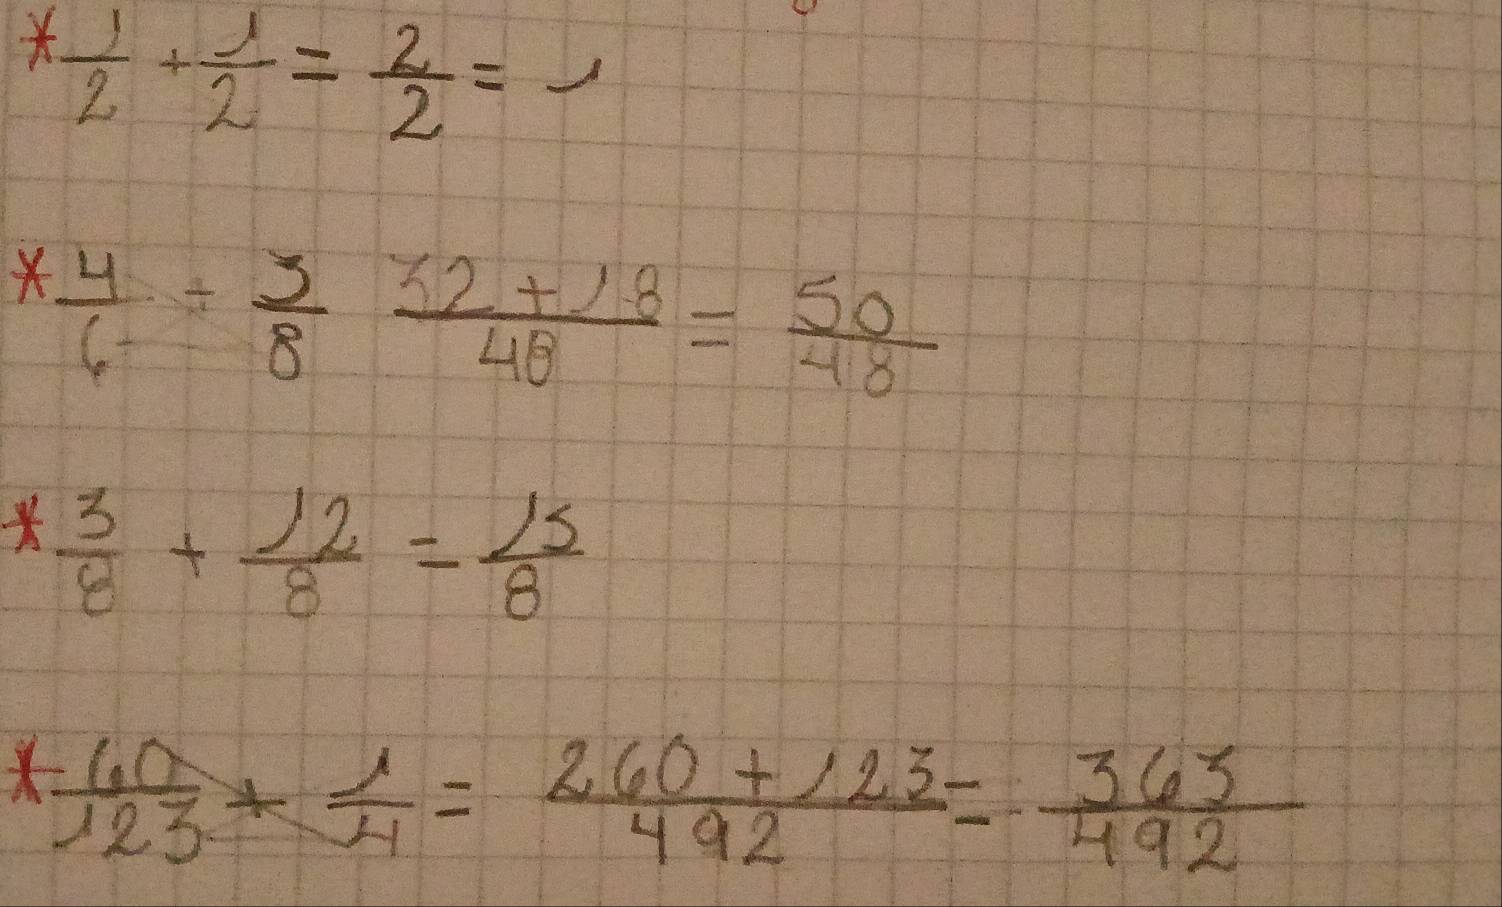 * 1/2 + 1/2 = 2/2 = 1
* 4/6 + 3/8 32+18/48 = 50/48
* 3/8 + 12/8 = 15/8
* 60/123 + 1/4 = 260+123/492 = 363/492